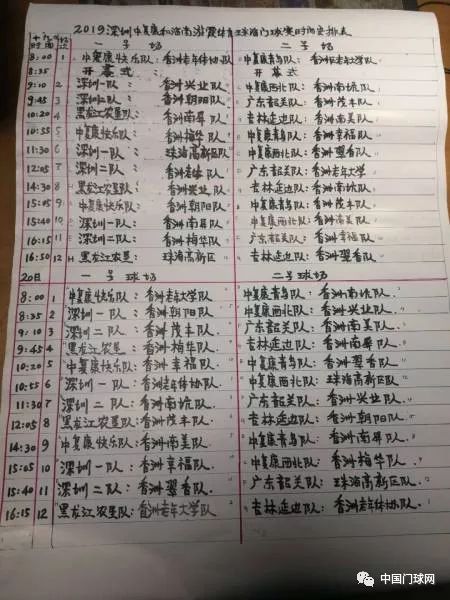 2019深圳中复康和海南 体育 门球赛时间安排表
十九日 场次 一号场 二号场
时间
8:00 1 中复康快乐队:香洲老年体协队 中复康青鸟队:香洲老年大学队
8:35 开幕式 开幕式
9:10 2 深圳一队:香洲兴业队 中复康西北队:香洲南坑队
9:45 3 深圳二队:香洲朝阳队 广东韶关队:香洲茂丰队
10:20 4 黑龙江农垦队:香洲南屏队 吉林延边队:香洲南美队
10:55 5 中复康快乐队:香洲梅华队 中复康青鸟队:香洲幸福队
11:30 6 深圳一队:珠海高新区队 中复康西北队:香洲翠香队
12:05 7 深圳二队:香洲老年体队 广东韶关队:香洲老年大学
14:30 8 黑龙江农垦队:香洲兴业队 吉林延边队:香洲南坑队
15:05 9 中复康快乐队:香洲朝阳队 中复康青鸟队:香洲茂丰队
15:40 10 深圳一队:香洲南屏队 中复康西北队:香洲南美队
16:15 11 深圳二队:香洲梅华队 广东韶关队:香洲幸福队
16:50 12 黑龙江农垦:珠海高新区 吉林延边队:香洲翠香队
20日 一号球场 二号球场
8:00 1 中复康快乐队:香洲老年大学队 中复康青鸟队:香洲南坑队
8:35 2 深圳一队:香洲朝阳队 中复康西北队:香洲兴业队
9:10 3 深圳二队:香洲茂丰队 广东韶关队:香洲南美队
9:45 4 黑龙江农垦:香洲梅华队 吉林延边队:香洲南屏队
10:20 5 中复康快乐队:香洲幸福队 中复康青鸟队:香洲翠香队
10:55 6 深圳一队:香洲老年体协 中复康西北队:珠海高新区队
11:30 7 深圳二队:香洲南坑队 广东韶关队:香洲兴业队
12:05 8 黑龙江农垦队:香洲茂丰队 吉林延边队:香洲朝阳队
14:30 9 中复康快乐队:香洲南美队 中复康青鸟队:香洲南屏队
15:05 10 深圳一队:香洲幸福队 中复康西北队:香洲梅华队
15:40 11 深圳二队:香洲翠香队 广东韶关队:珠海高新区队
16:15 12 黑龙江农垦队:香洲老年大学队 吉林延边队:香洲老年体协队
中国门球网